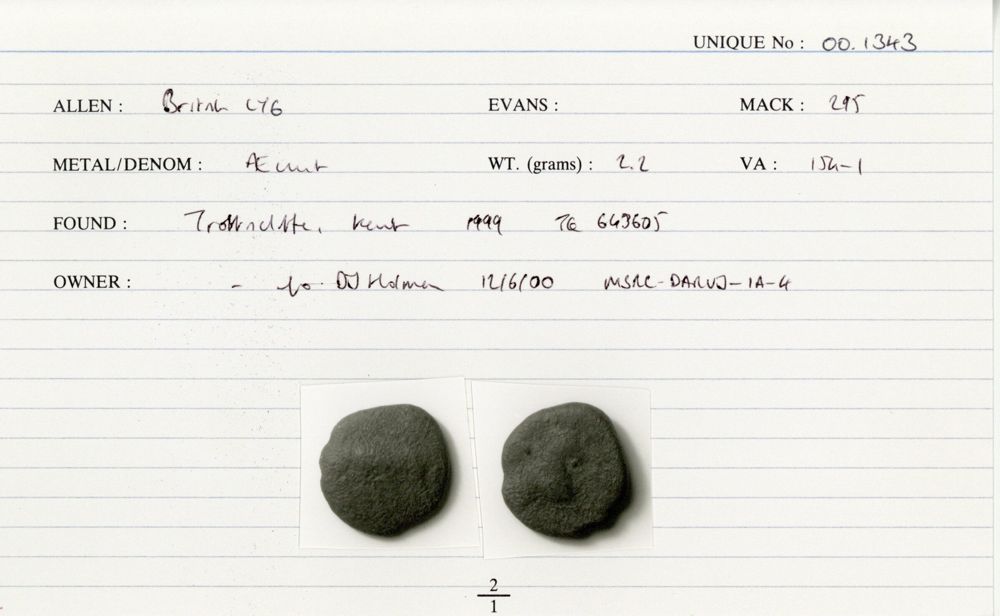 UNIQUE No : 00.1343
ALLEN : British LY6 EVANS : MACK : 295
METAL/DENOM : Æ unit WT. (grams) : 2.2 VA : 154-1
FOUND : Trottiscliffe, Kent 1999 TQ 643605
OWNER : - DJ Holman 12/6/00
2
1